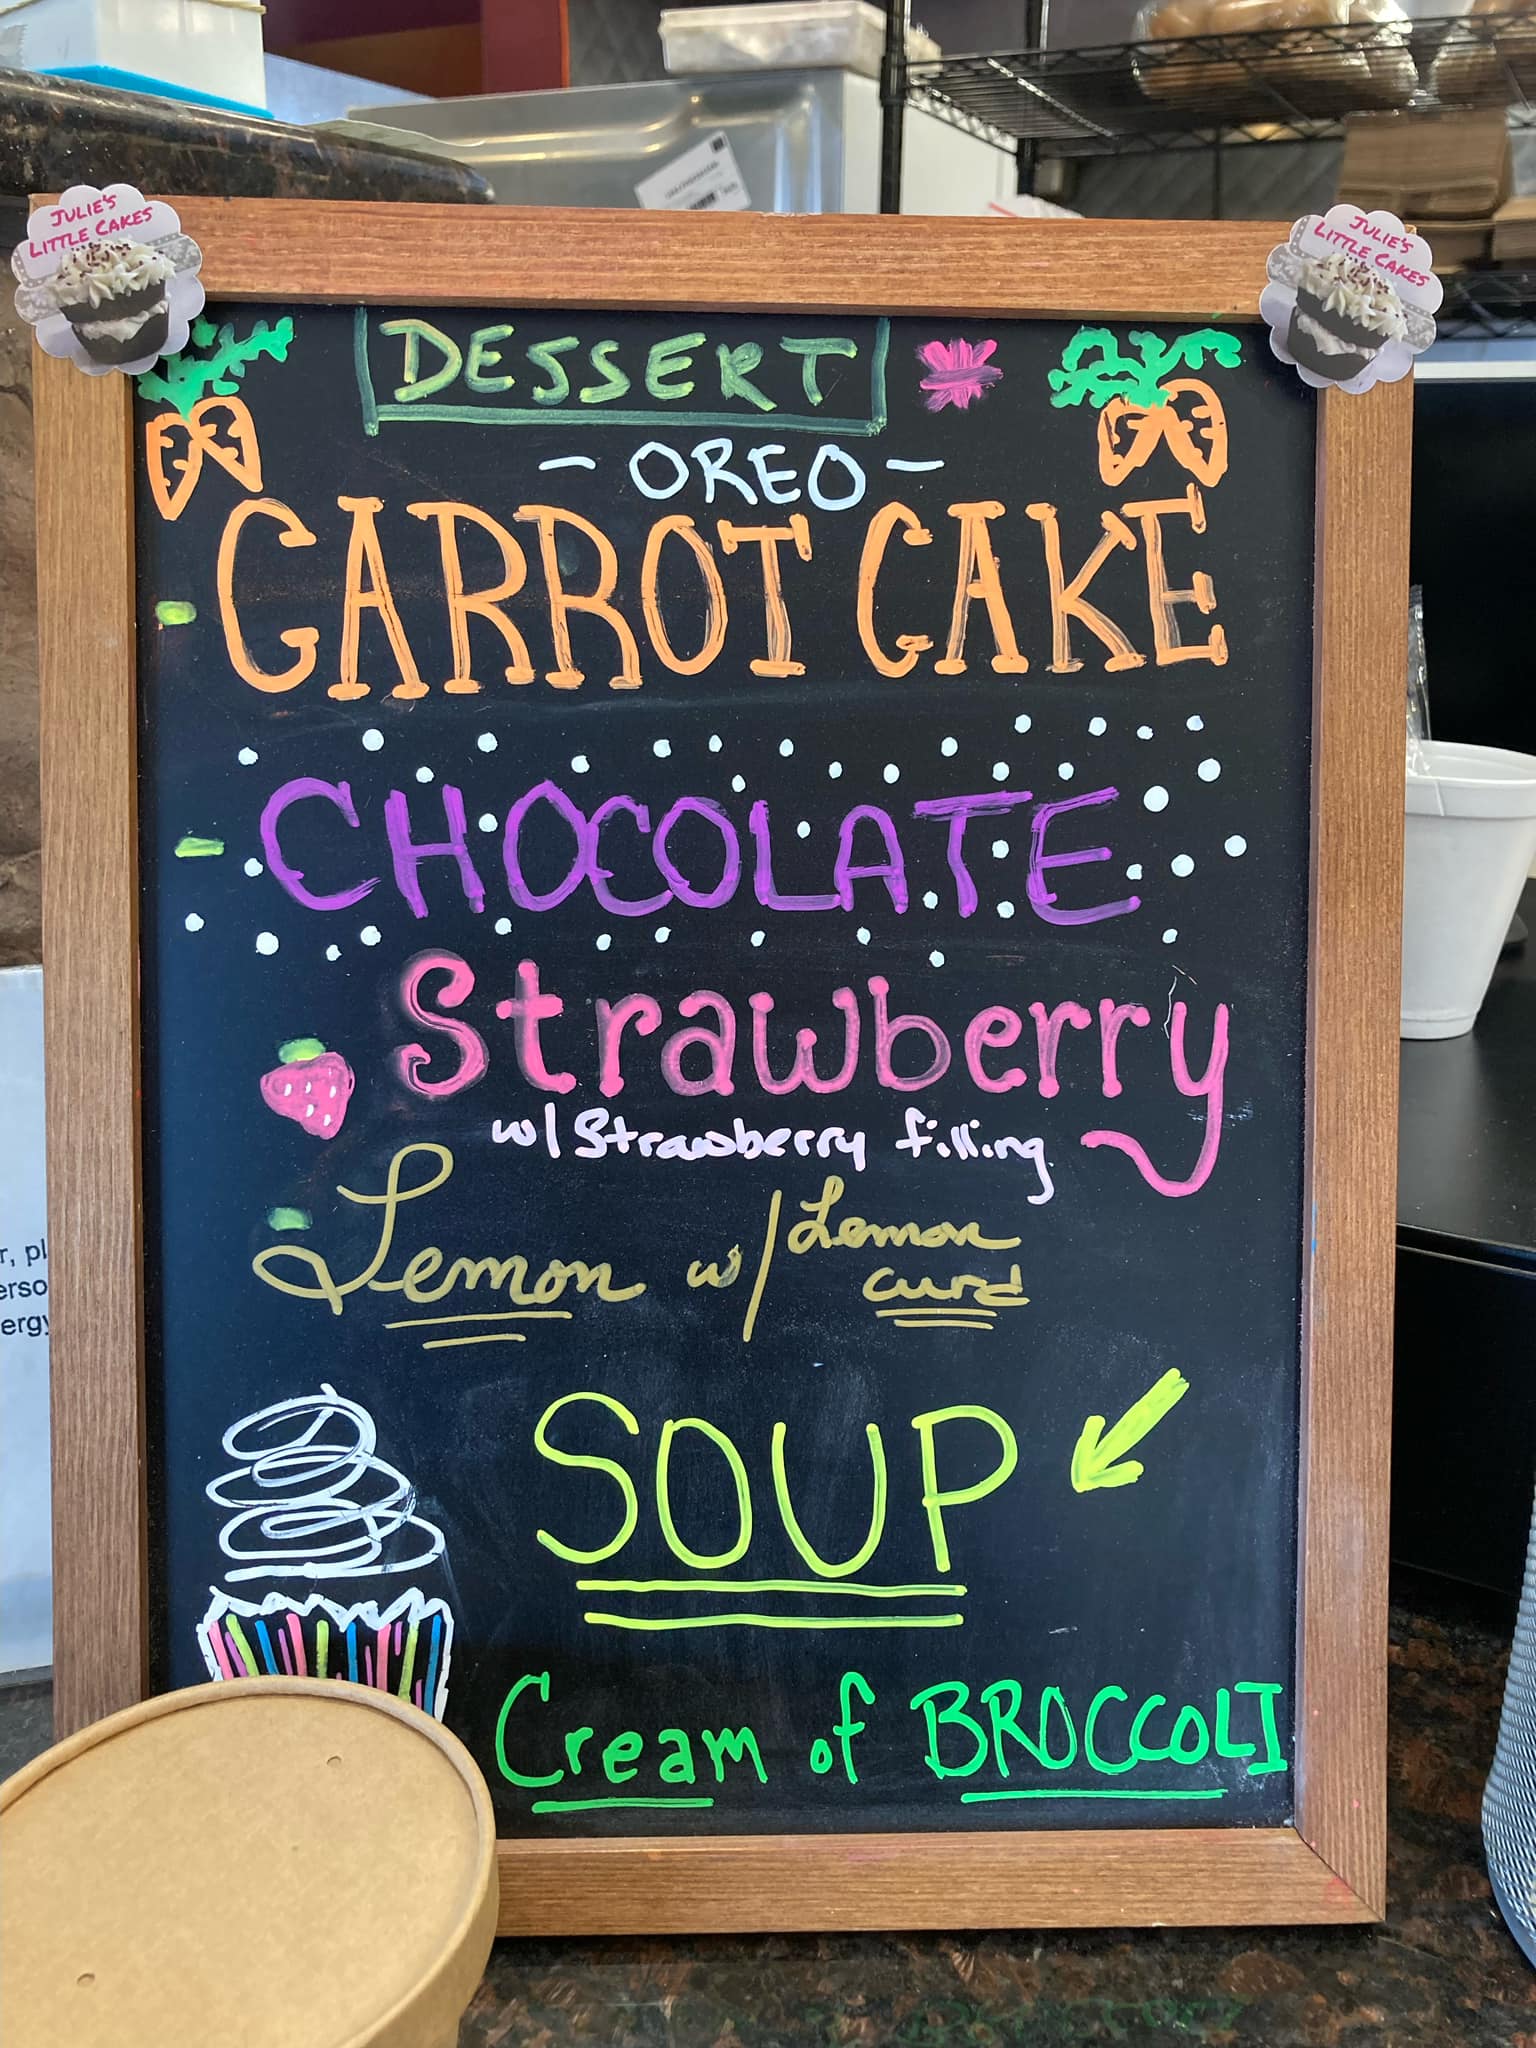 JULIE'S
LITTLE CAKES
JULIE'S
LITTLE CAKES
DESSERT
- OREO -
CARROT CAKE
CHOCOLATE
Strawberry
w/ Strawberry filling
Lemon w/ Lemon
curd
SOUP
Cream of BROCCOLI
r, pl
erso
ergy